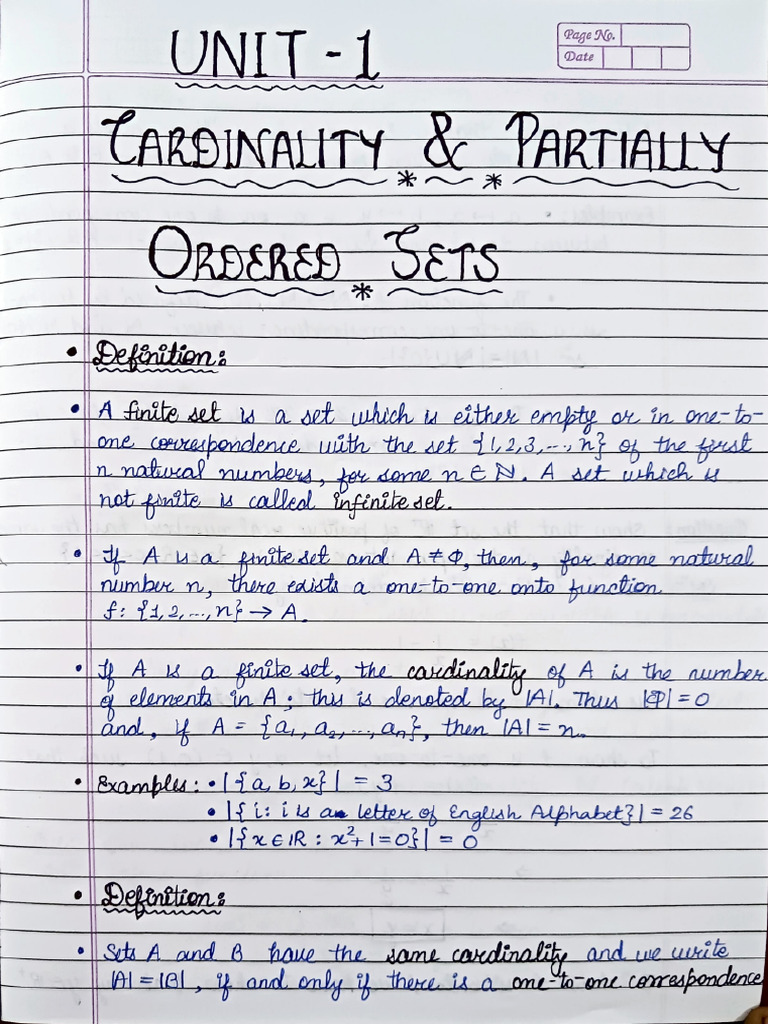 UNIT - 1
Page No.
Date
CARDINALITY & PARTIALLY
ORDERED SETS
• Definition:
• A finite set is a set which is either empty or in one-to-
one correspondence with the set {1,2,3,...,n} of the first
n natural numbers, for some n ∈ N. A set which is
not finite is called infinite set.
• If A is a finite set and A ≠ Φ, then, for some natural
number n, there exists a one-to-one onto function
f: {1,2,...,n} → A.
• If A is a finite set, the cardinality of A is the number
of elements in A; this is denoted by |A|. Thus |Φ| = 0
and, if A = {a₁, a₂, ..., aₙ}, then |A| = n.
• Examples: • |{a, b, x}| = 3
• |{i: i is a letter of English Alphabet}| = 26
• |{x ∈ IR : x²+1=0}| = 0
• Definition:
• Sets A and B have the same cardinality and we write
|A| = |B|, if and only if there is a one-to-one correspondence